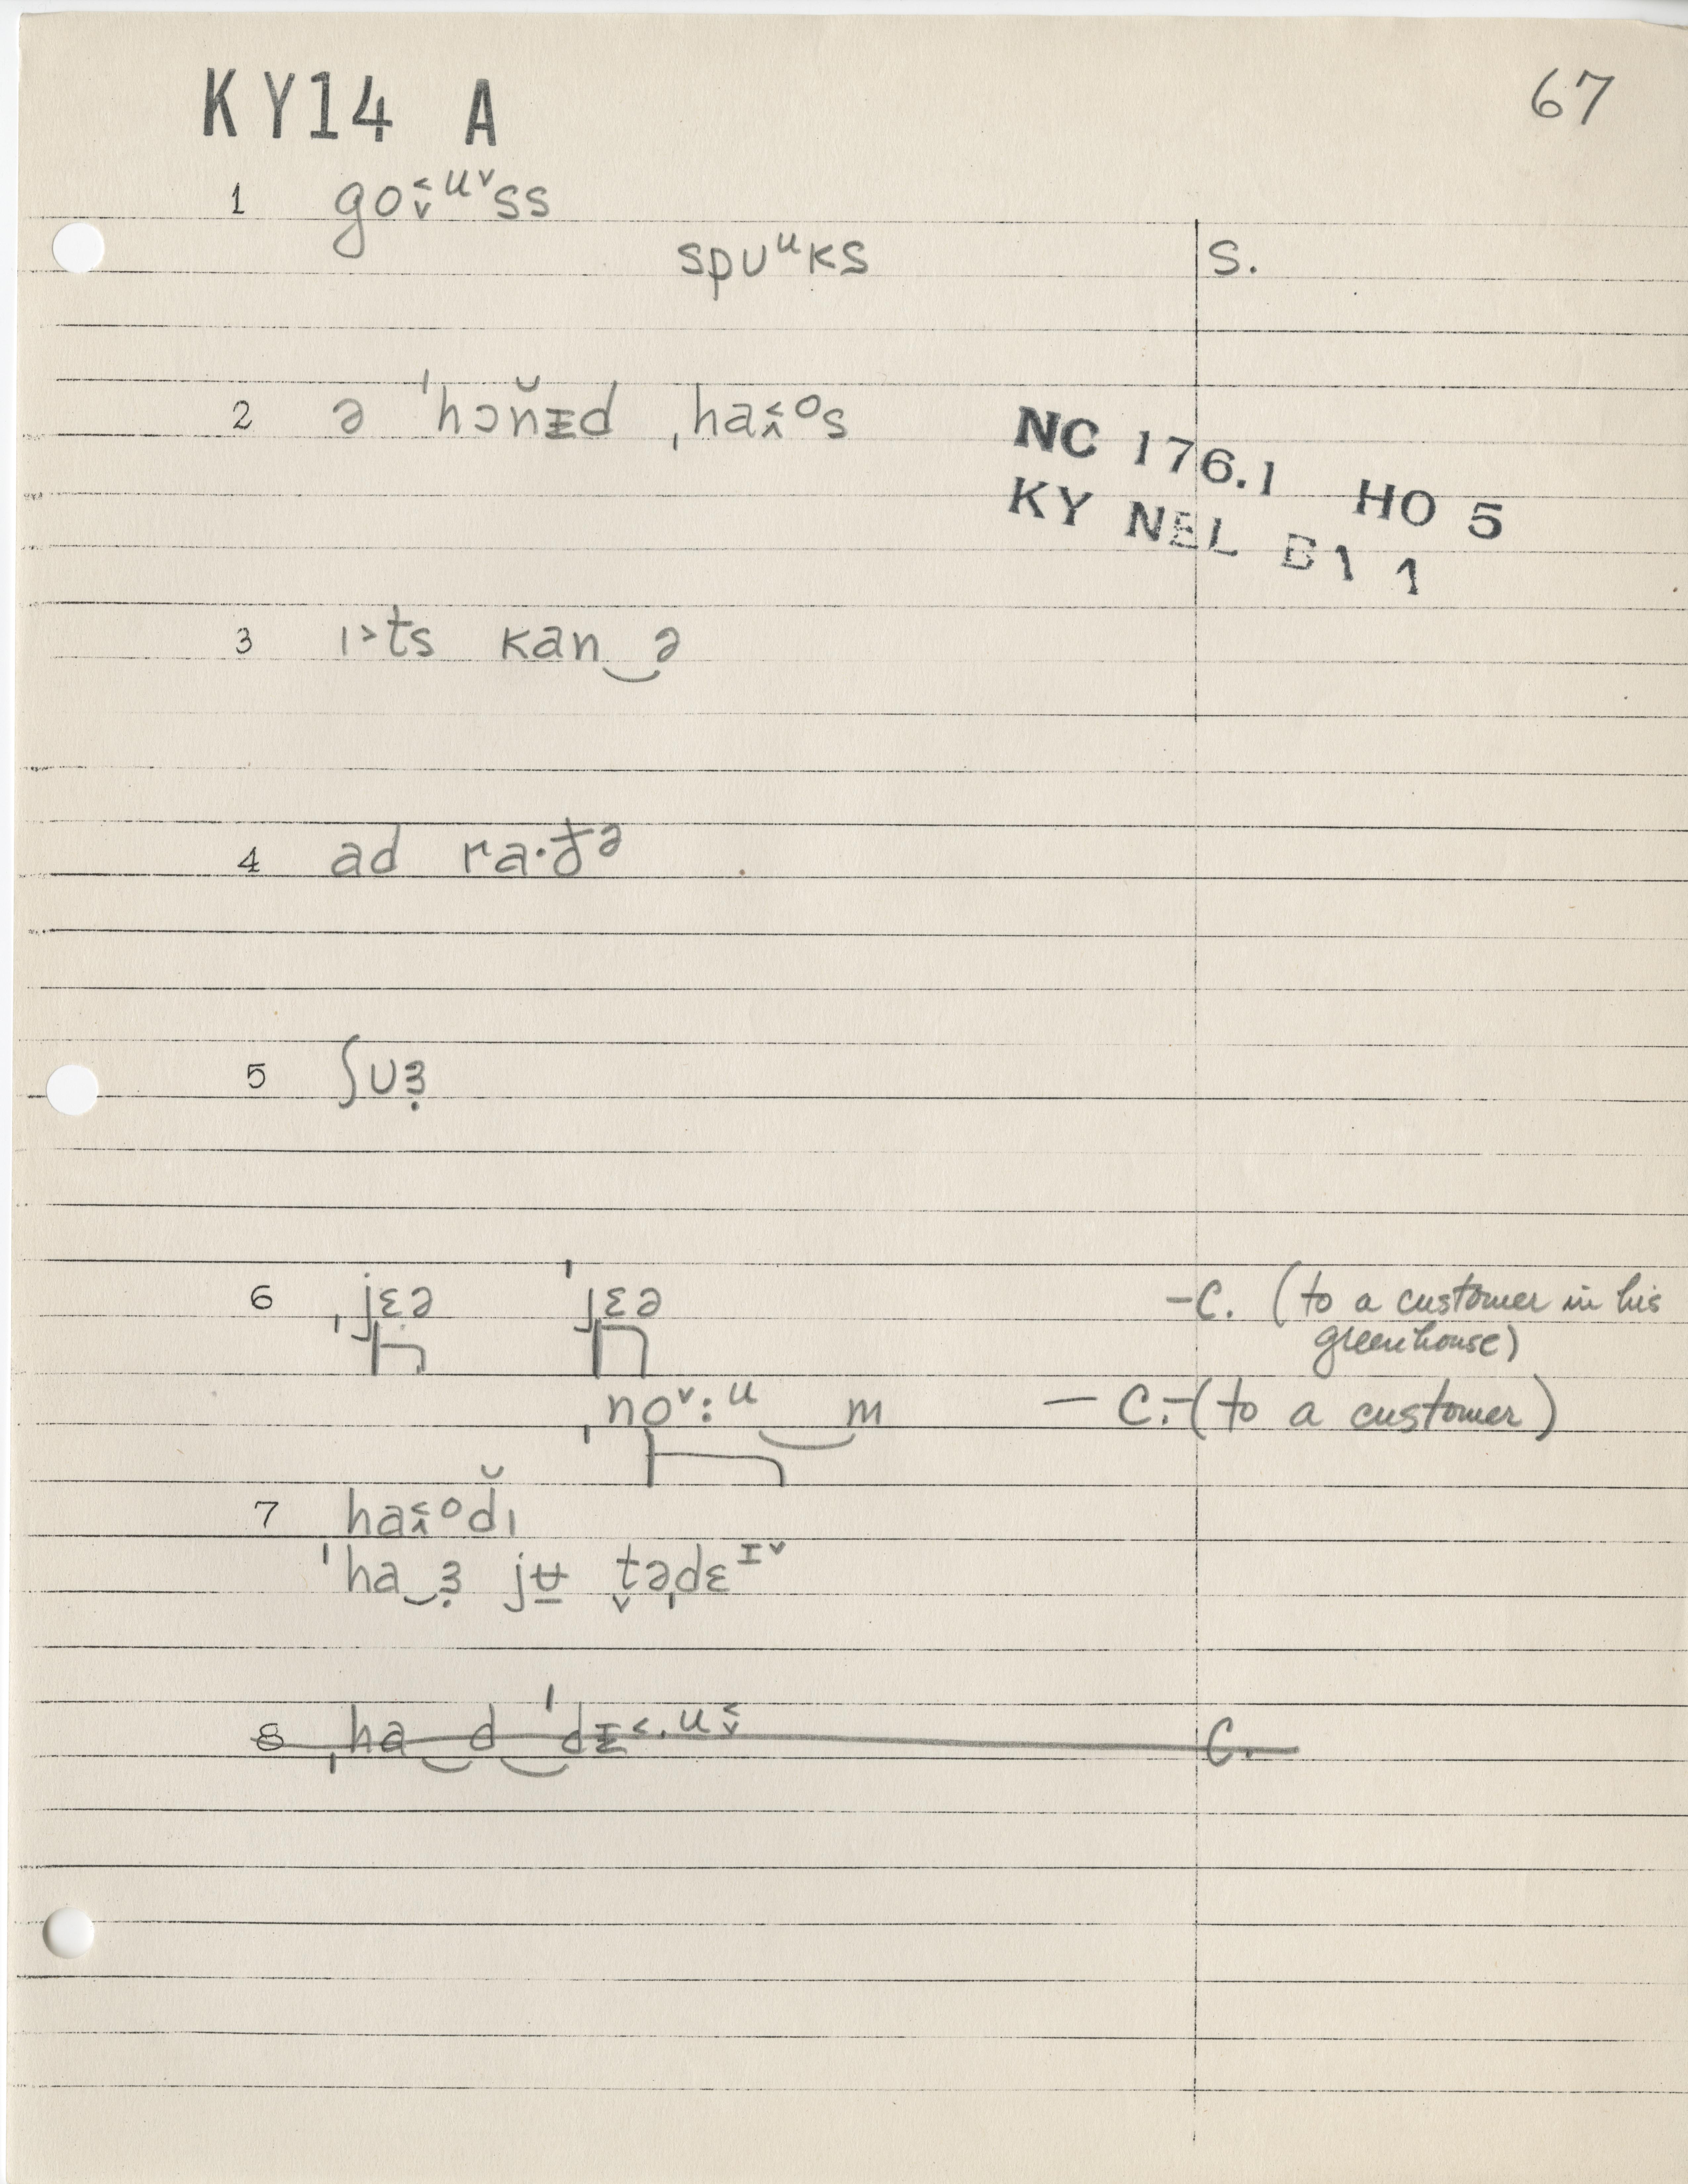 KY14 A 67
1 go˂˅ᵘ˅ss
spᴜᵘks s.
2 ə ˈhɔn̆ᵻd ˌha˂˄ᵒs
NC 176.1 HO 5
KY NEL B1 1
3 ɪ˃ts kan‿ə
4 ad ra·t̬ə
5 ʃᴜɜ̣
6 ˌjɛə ˈjɛə –C. (to a customer in his
greenhouse)
ˌno˅:ᵘ‿m — C.–(to a customer)
7 ha˂˄ᵒd̆ɪ
ˈha‿ɜ̣ jʉ̱ t̬əˌdɛᶦ˅
8 ˌha‿d‿ˈdᵻ˂·ᵘ˂˅ C.